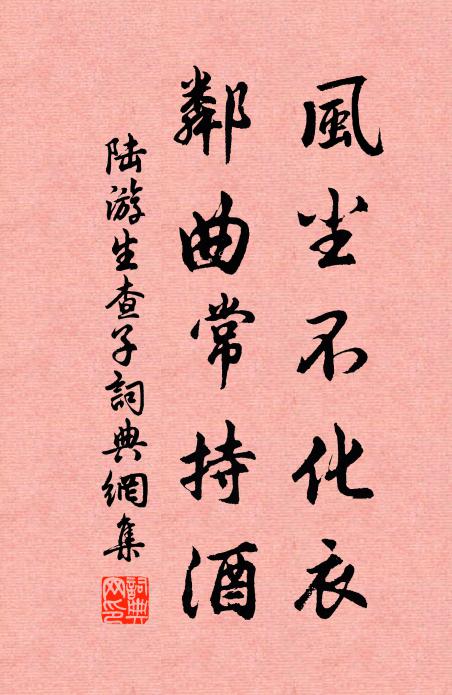 風尘不化衣
鄰曲常持酒
陆游生查子詞典網集
詞典网印